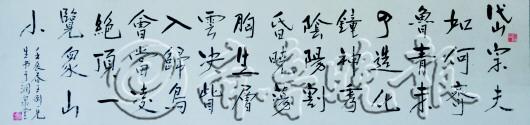 岱宗夫
如何齊
魯青未
了造化
鐘神秀
陰陽割
昏曉蕩
胸生層
雲決眥
入歸鳥
會當凌
絕頂一
覽眾山
小
壬辰春王